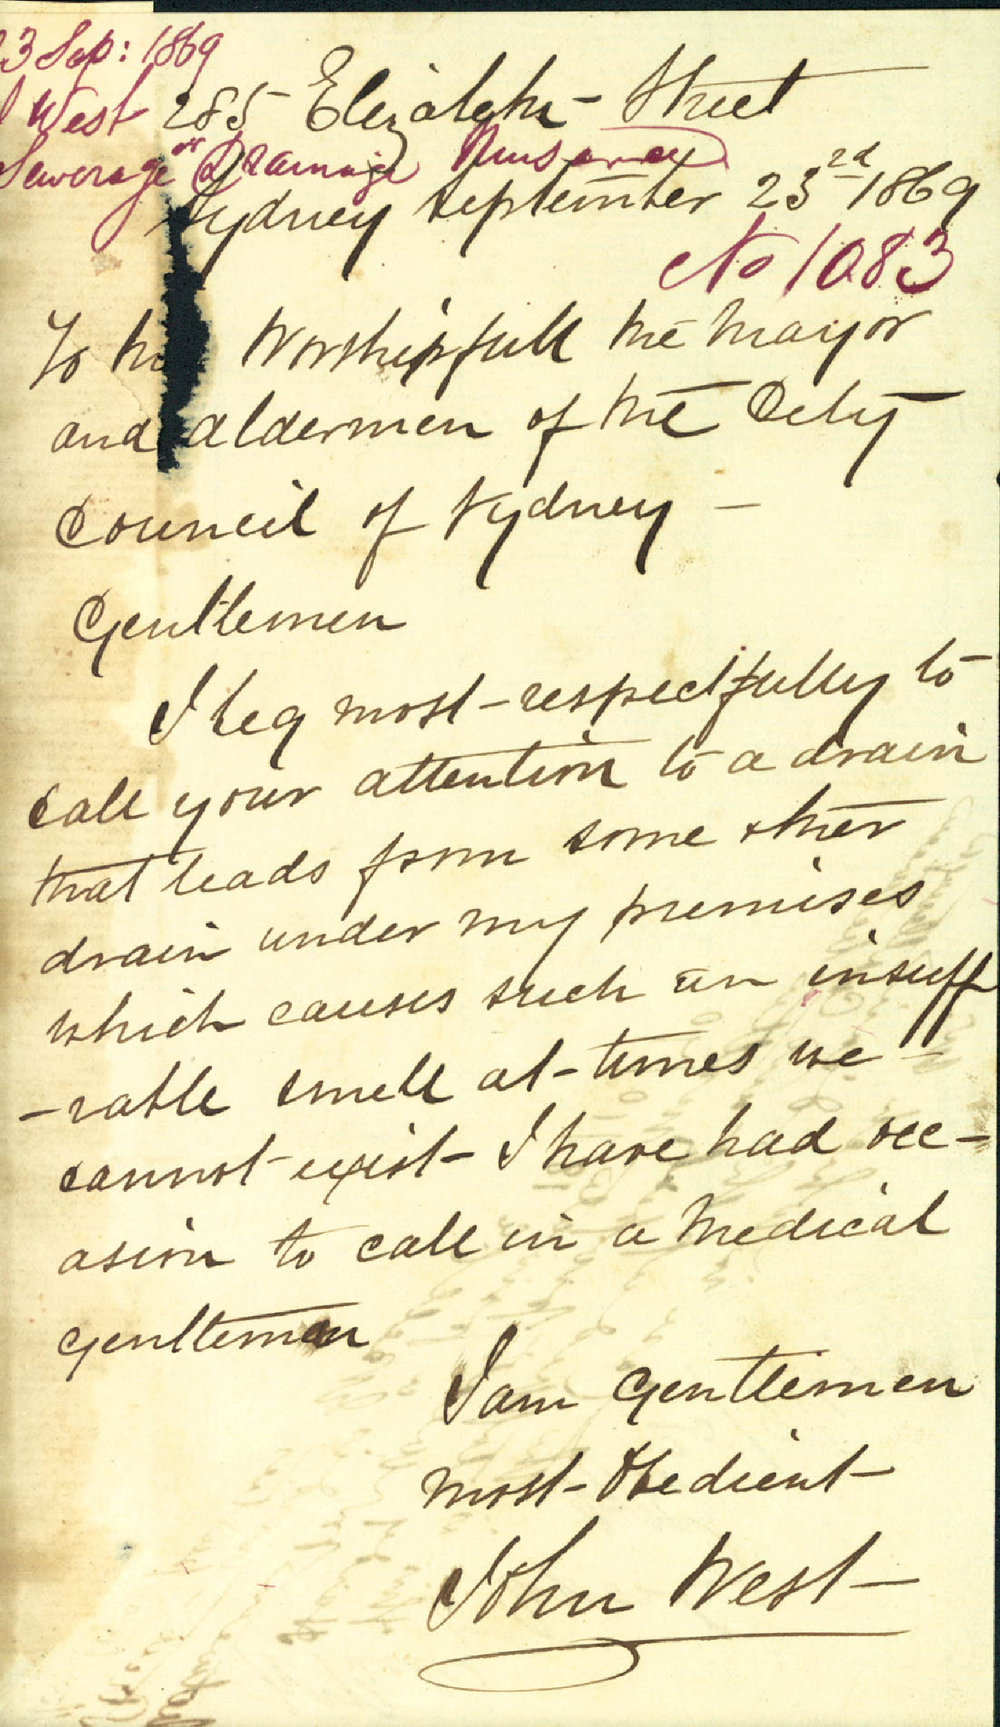 23 Sep: 1869
J West 285 Elizabeth Street
Sewerage or Drainage Nuisance
Sydney September 23rd 1869
No 1083
To his Worshipfull the Mayor
and aldermen of the City
Council of Sydney -
Gentlemen
I beg most-respectfully to
call your attention to a drain
that leads from some other
drain under my premises
which causes such an insuff
-rable smell at-times we -
cannot-exist- I have had occ-
asion to call in a Medical
gentleman
I am Gentlemen
most-Obedient-
John West-